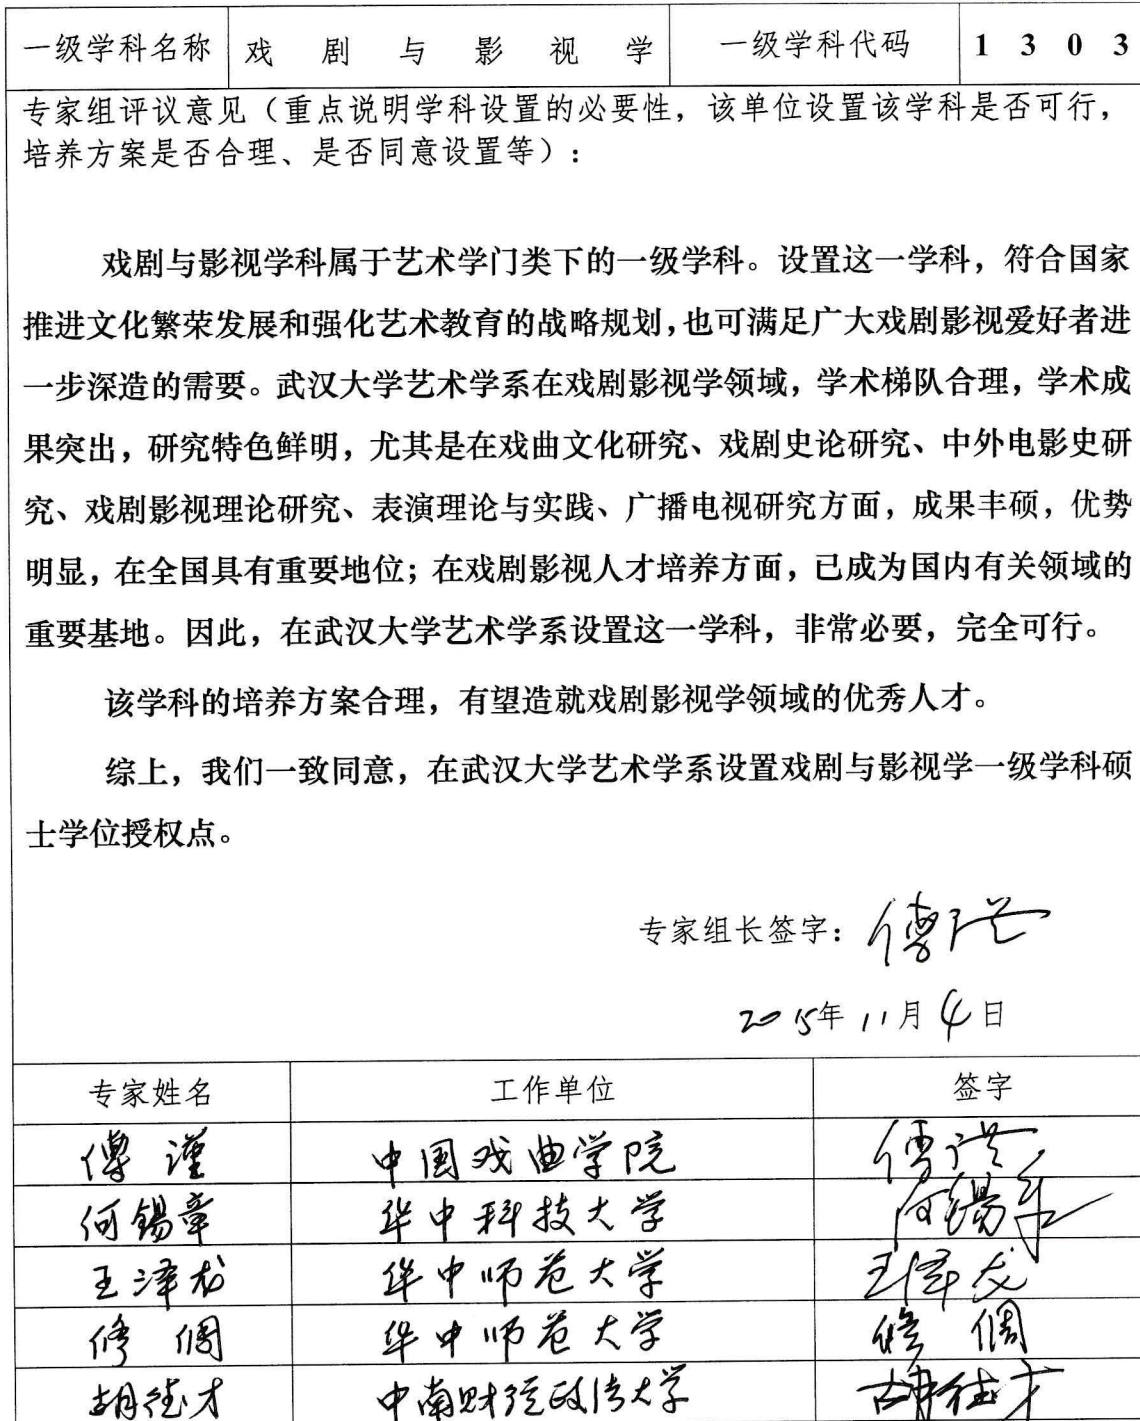 一级学科名称 戏剧与影视学 一级学科代码 1 3 0 3
专家组评议意见（重点说明学科设置的必要性，该单位设置该学科是否可行，
培养方案是否合理、是否同意设置等）：
戏剧与影视学科属于艺术学门类下的一级学科。设置这一学科，符合国家
推进文化繁荣发展和强化艺术教育的战略规划，也可满足广大戏剧影视爱好者进
一步深造的需要。武汉大学艺术学系在戏剧影视学领域，学术梯队合理，学术成
果突出，研究特色鲜明，尤其是在戏曲文化研究、戏剧史论研究、中外电影史研
究、戏剧影视理论研究、表演理论与实践、广播电视研究方面，成果丰硕，优势
明显，在全国具有重要地位；在戏剧影视人才培养方面，已成为国内有关领域的
重要基地。因此，在武汉大学艺术学系设置这一学科，非常必要，完全可行。
该学科的培养方案合理，有望造就戏剧影视学领域的优秀人才。
综上，我们一致同意，在武汉大学艺术学系设置戏剧与影视学一级学科硕
士学位授权点。
专家组长签字：傅谨
2015年11月4日
专家姓名 工作单位 签字
傅谨 中国戏曲学院 傅谨
何锡章 华中科技大学 何锡章
王泽龙 华中师范大学 王泽龙
修倜 华中师范大学 修倜
胡德才 中南财经政法大学 胡德才